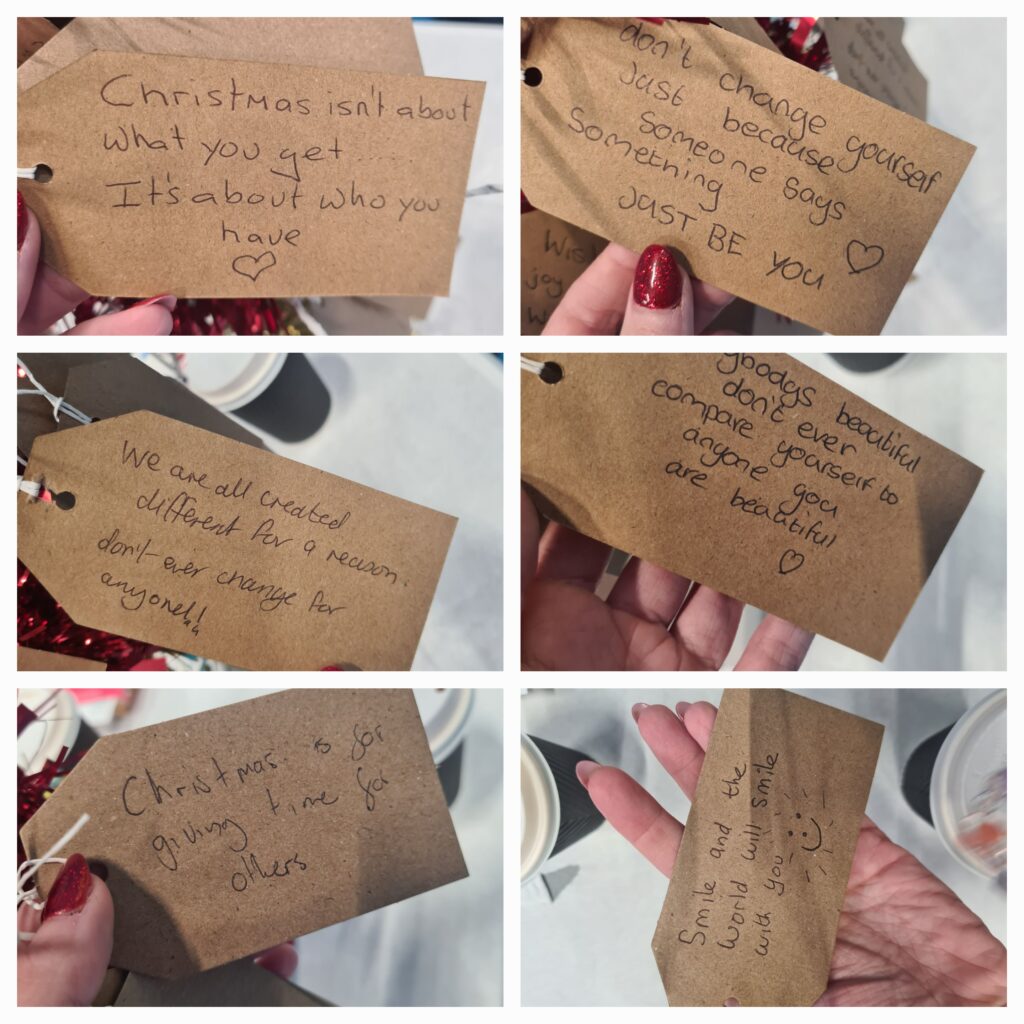 Christmas isn't about
what you get .....
It's about who you
have
don't change yourself
Just because
someone says
something
JUST BE YOU
Wish
joy
We are all created
different for a reason.
don't ever change for
anyone!!
ybodys beautiful
don't ever
compare yourself to
anyone you
are beautiful
Christmas is for
giving time for
others
Smile and the
World will smile
with you